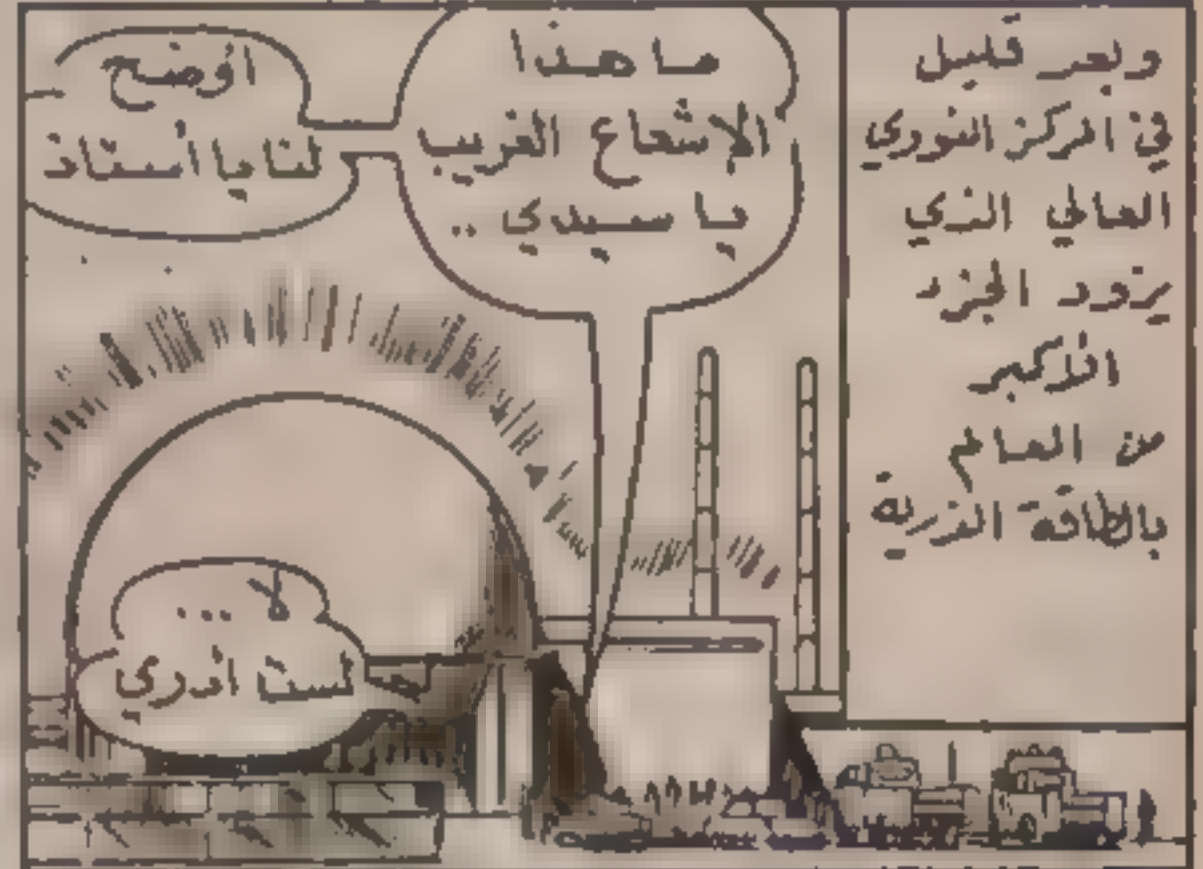 وبعد قليل
في المركز النووي
العالمي الذي
يزود الجزء
الأكبر
من العالم
بالطاقة الذرية
ما هذا
الإشعاع الغريب
يا سيدي ..
أوضح
لنا يا أستاذ
لا ...
لست أدري